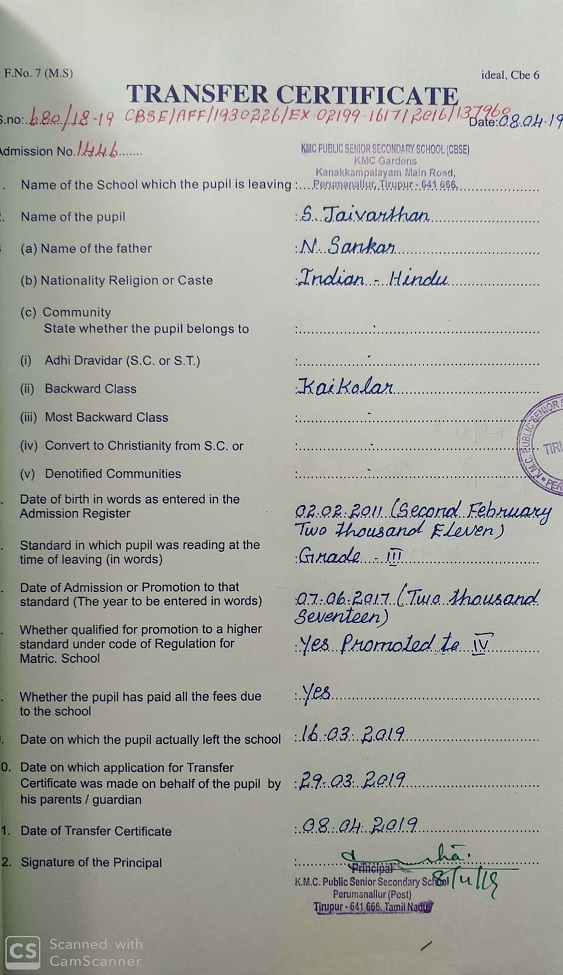 F.No. 7 (M.S) ideal, Cbe 6
TRANSFER CERTIFICATE
S.no: 680/18-19 CBSE/AFF/1930226/EX-02199-1617/2016/137960 Date: 08.04.19
Admission No. 1446
KMC PUBLIC SENIOR SECONDARY SCHOOL (CBSE)
KMC Gardens
Kanakkampalayam Main Road,
. Name of the School which the pupil is leaving : Perumanallur, Tirupur - 641 666.
. Name of the pupil : S. Jaivarthan
(a) Name of the father : N. Sankar
(b) Nationality Religion or Caste : Indian - Hindu
(c) Community
State whether the pupil belongs to : -
(i) Adhi Dravidar (S.C. or S.T.) : -
(ii) Backward Class : Kaikolar
(iii) Most Backward Class : -
(iv) Convert to Christianity from S.C. or : -
(v) Denotified Communities : -
K.M.C. PUBLIC SENIOR S
TIRU
PE
. Date of birth in words as entered in the
Admission Register 02.02.2011 (Second February
Two thousand Eleven)
. Standard in which pupil was reading at the
time of leaving (in words) : Grade - III
. Date of Admission or Promotion to that
standard (The year to be entered in words) : 07.06.2017 (Two thousand
Seventeen)
. Whether qualified for promotion to a higher
standard under code of Regulation for : Yes Promoted to IV
Matric. School
. Whether the pupil has paid all the fees due : Yes
to the school
. Date on which the pupil actually left the school : 16.03.2019
0. Date on which application for Transfer
Certificate was made on behalf of the pupil by : 29.03.2019
his parents / guardian
1. Date of Transfer Certificate : 08.04.2019
2. Signature of the Principal :
Principal
K.M.C. Public Senior Secondary School 8/4/19
Perumanallur (Post)
Tirupur - 641 666. Tamil Nadu
CS Scanned with
CamScanner